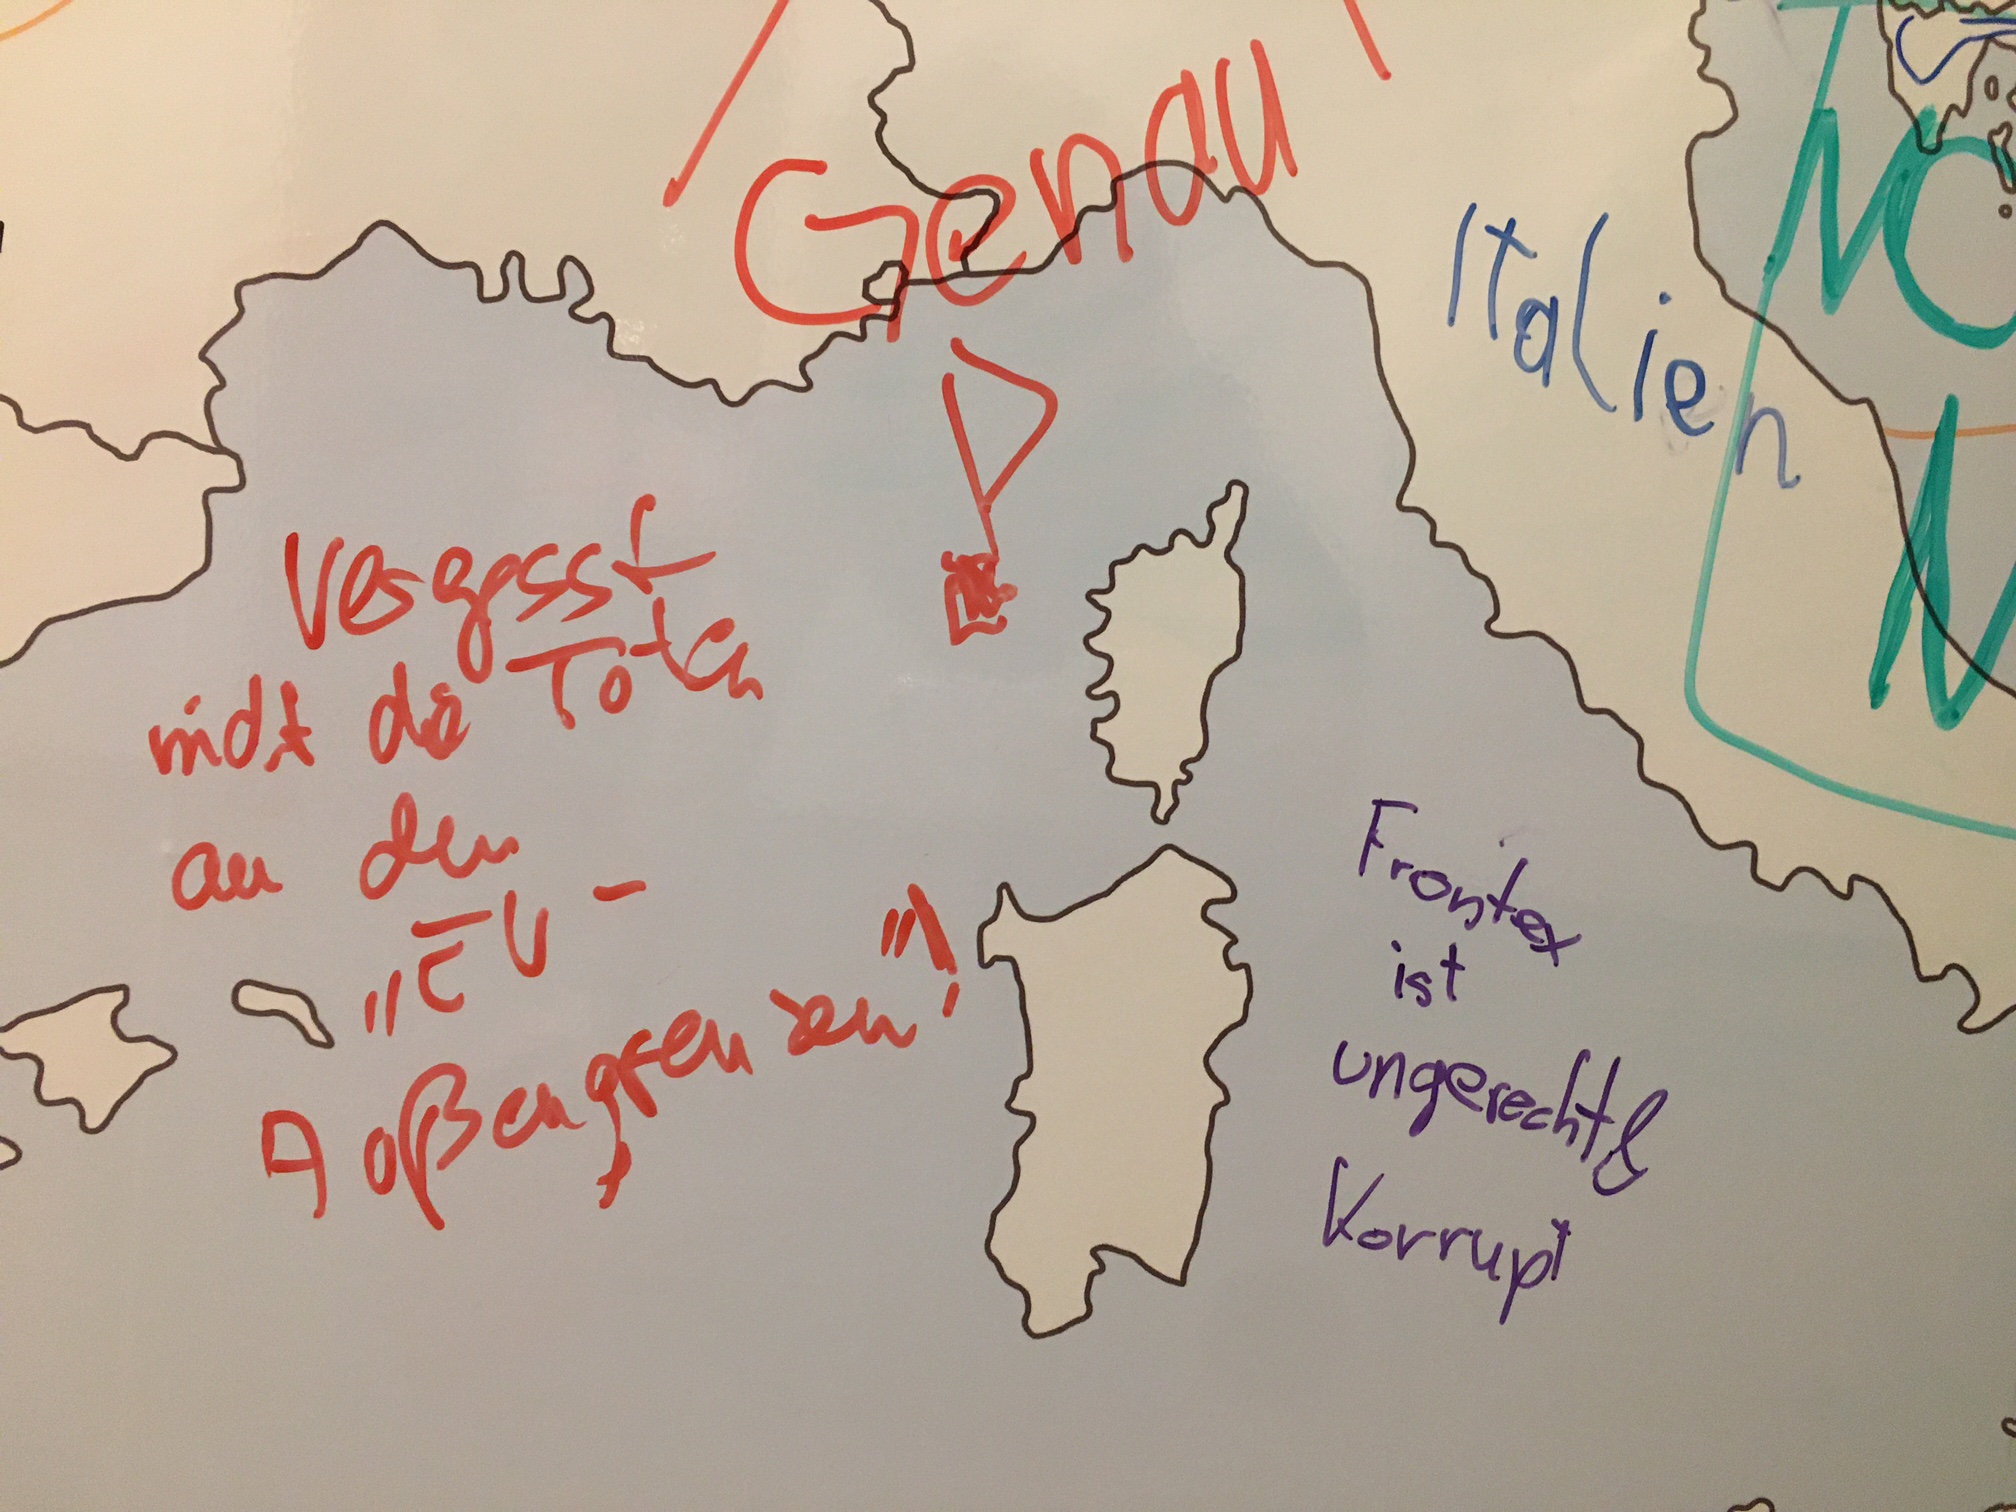 Genau !
Italien
NO
N
Vergesst
nicht die Toten
an den
„EU-
Außengrenzen"!
Frontex
ist
ungerecht &
Korrupt